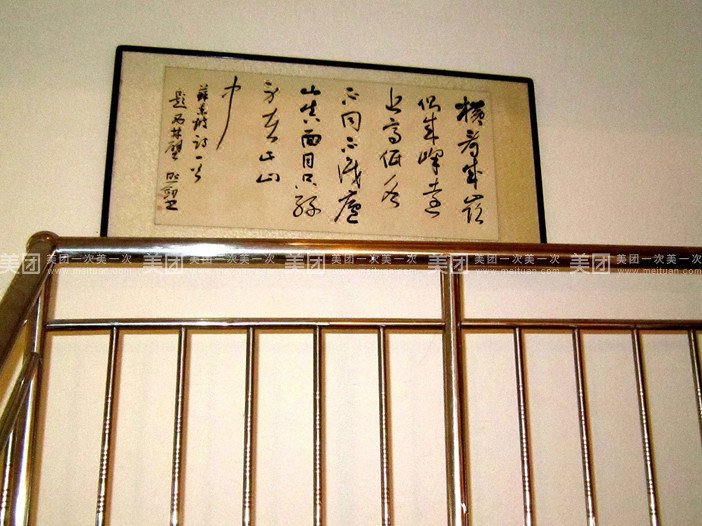 橫看成嶺
側成峰遠
近高低各
不同不識廬
山真面目只緣
身在此山
中
蘇東坡詩一首
題西林壁
美团 美团一次美一次 美团 美团一次美一次 美团 美团一次美一次 美团 美团一次美一次 美团 美团一次美一次
www.meituan.com www.meituan.com www.meituan.com www.meituan.com www.meituan.com